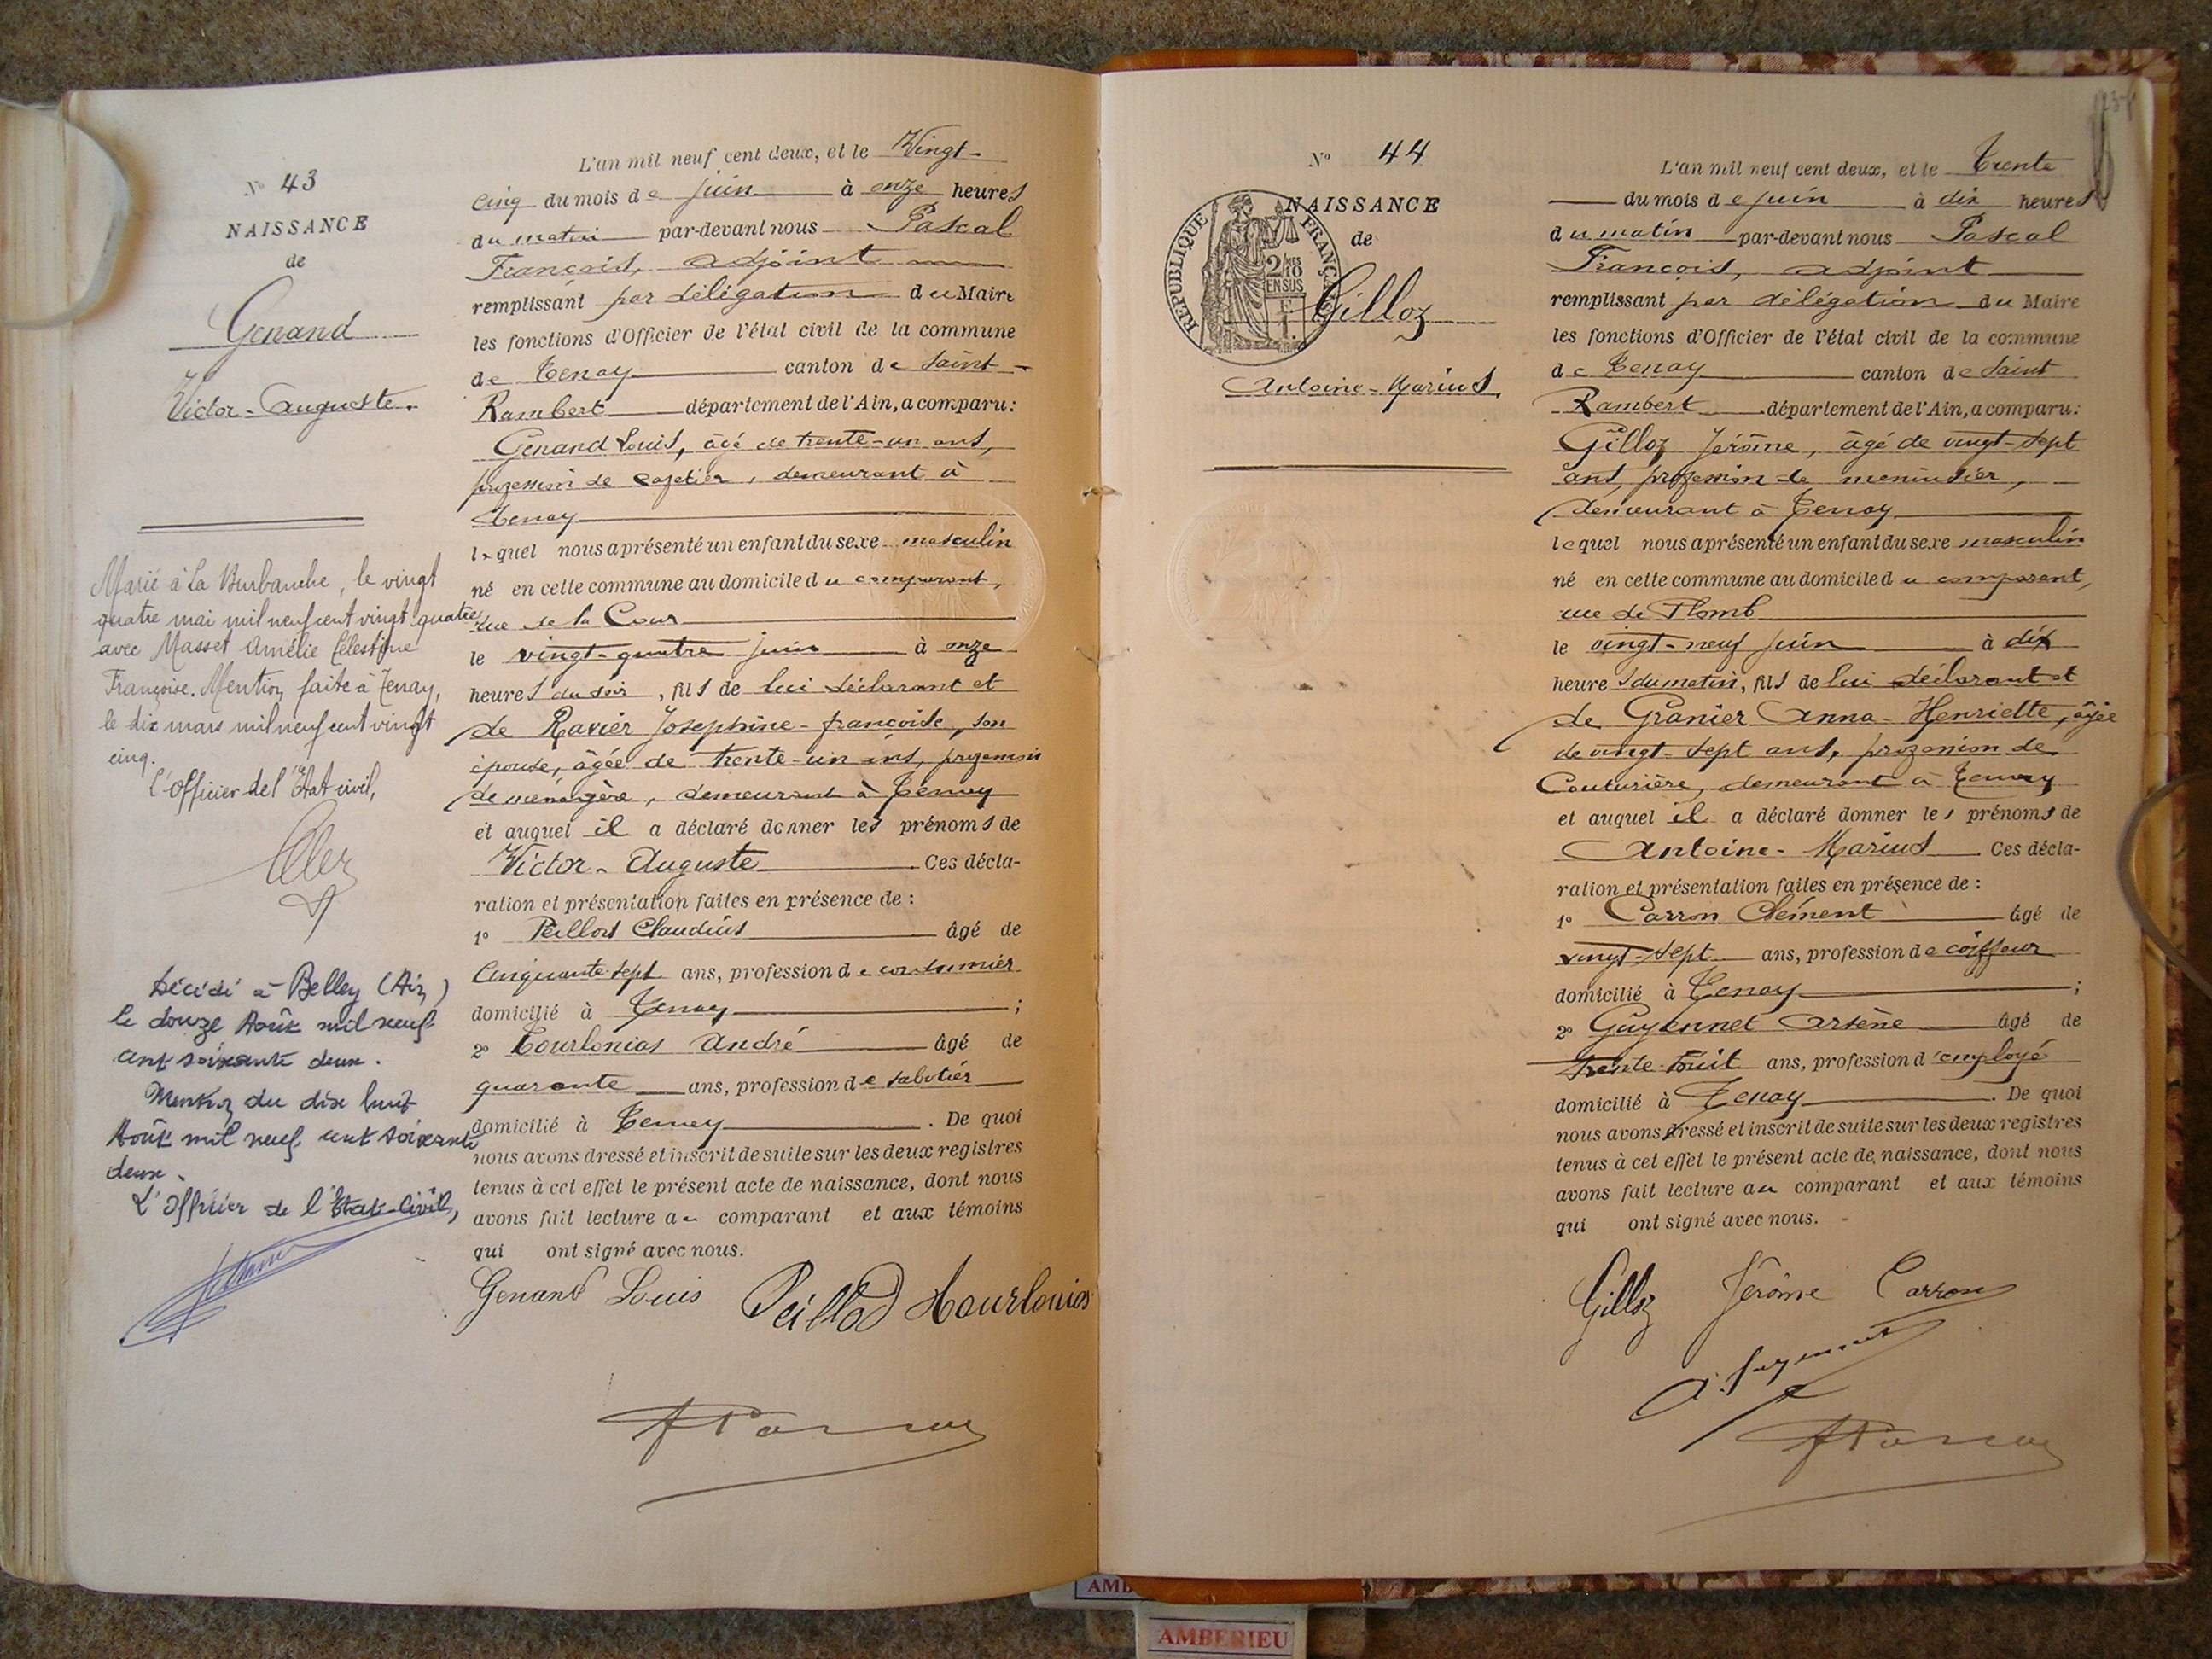 N° 43
NAISSANCE
de
Genand
Victor-Auguste.
Marié à La Burbanche, le vingt
quatre mai mil neuf cent vingt quatre
avec Masset Amélie Célestine
Françoise. Mention faite à Tenay,
le dix mars mil neuf cent vingt
cinq.
l'Officier de l'Etat civil,
Décédé à Belley (Ain)
le douze Août mil neuf
cent soixante deux.
Mention du dix huit
Août mil neuf cent soixante
deux.
L'Officier de l'Etat-Civil,
L'an mil neuf cent deux, et le Vingt-
cinq du mois de juin à onze heures
du matin par-devant nous Pascal
François, adjoint
remplissant par délégation du Maire
les fonctions d'Officier de l'état civil de la commune
de Tenay canton de Saint-
Rambert département de l'Ain, a comparu:
Genand Louis, âgé de trente-un ans,
profession de cafetier, demeurant à
Tenay
lequel nous a présenté un enfant du sexe masculin
né en cette commune au domicile du comparant,
rue de la Cour
le vingt-quatre juin à onze
heures du soir, fils de lui déclarant et
de Ravier Josephine-françoise, son
épouse, âgée de trente-un ans, profession
de ménagère, demeurant à Tenay
et auquel il a déclaré donner les prénoms de
Victor-Auguste Ces décla-
ration et présentation faites en présence de :
1° Peillod Claudius âgé de
Cinquante-sept ans, profession de cordonnier
domicilié à Tenay ;
2° Tourlonias André âgé de
quarante ans, profession de sabotier
domicilié à Tenay . De quoi
nous avons dressé et inscrit de suite sur les deux registres
tenus à cet effet le présent acte de naissance, dont nous
avons fait lecture au comparant et aux témoins
qui ont signé avec nous.
Genand Louis Peillod Tourlonias
N° 44
NAISSANCE
de
RÉPUBLIQUE FRANÇAISE
2/10 EN SUS
Gilloz
Antoine-Marius.
L'an mil neuf cent deux, et le Trente
du mois de juin à dix heures
du matin par-devant nous Pascal
François, adjoint
remplissant par délégation du Maire
les fonctions d'Officier de l'état civil de la commune
de Tenay canton de Saint
Rambert département de l'Ain, a comparu:
Gilloz Jérôme, âgé de vingt-sept
ans, profession de menuisier,
demeurant à Tenay
lequel nous a présenté un enfant du sexe masculin
né en cette commune au domicile du comparant,
rue de Plomb
le vingt-neuf juin à dix
heures du matin, fils de lui déclarant et
de Granier Anna-Henriette, âgée
de vingt-sept ans, profession de
Couturière, demeurant à Tenay
et auquel il a déclaré donner les prénoms de
Antoine-Marius Ces décla-
ration et présentation faites en présence de :
1° Carron Clément âgé de
vingt-sept ans, profession de coiffeur
domicilié à Tenay ;
2° Guyennet Arsène âgé de
trente-huit ans, profession d'employé
domicilié à Tenay . De quoi
nous avons dressé et inscrit de suite sur les deux registres
tenus à cet effet le présent acte de naissance, dont nous
avons fait lecture au comparant et aux témoins
qui ont signé avec nous.
Gilloz Jérôme Carron
A. Guyennet
AMBERIEU